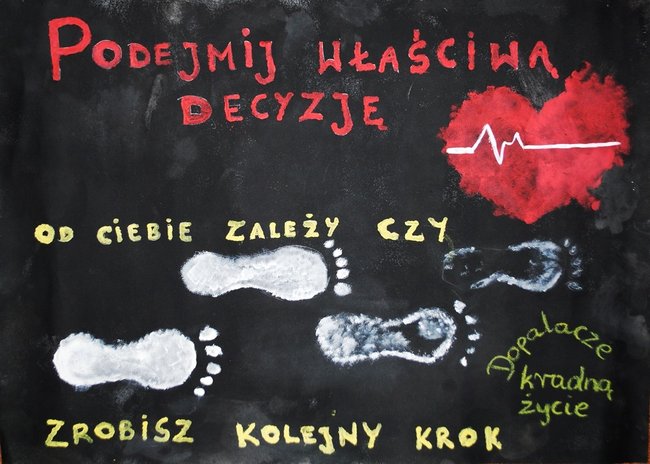 PODEJMIJ WŁAŚCIWĄ
DECYZJĘ
OD CIEBIE ZALEŻY CZY
ZROBISZ KOLEJNY KROK
Dopalacze
kradną
życie